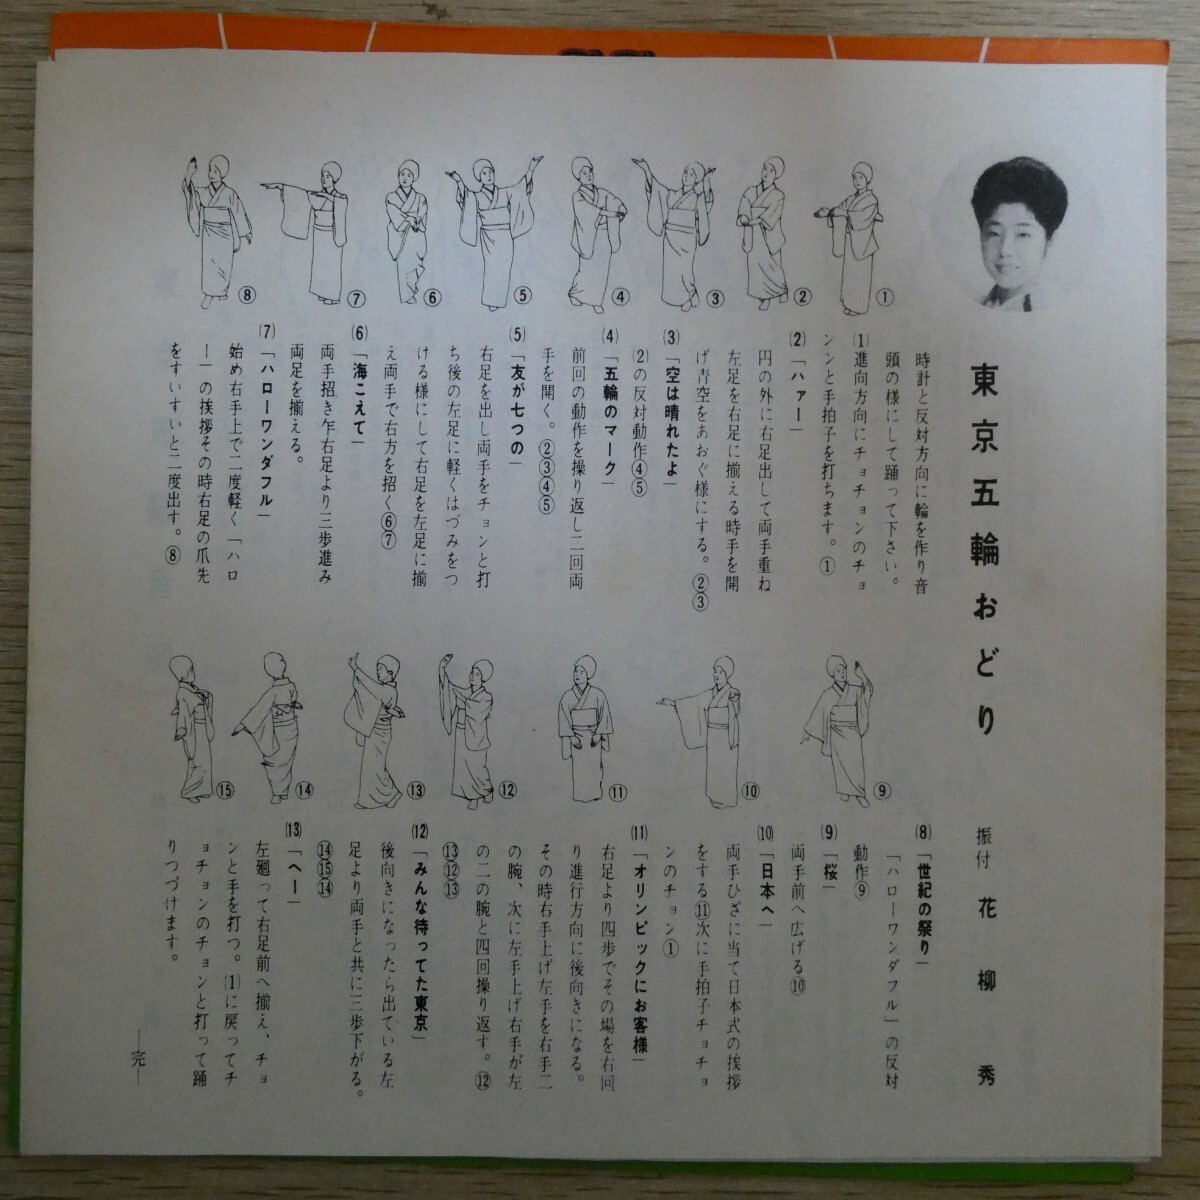 東京五輪おどり
振付 花柳 秀
時計と反対方向に輪を作り音
頭の様にして踊って下さい。
⑴進向方向にチョチョンのチョ
ンンと手拍子を打ちます。①
⑵「ハァー」
円の外に右足出して両手重ね
左足を右足に揃える時手を開
げ青空をあおぐ様にする。②③
⑶「空は晴れたよ」
⑵の反対動作④⑤
⑷「五輪のマーク」
前回の動作を操り返し二回両
手を開く。②③④⑤
⑸「友が七つの」
右足を出し両手をチョンと打
ち後の左足に軽くはづみをつ
ける様にして右足を左足に揃
え両手で右方を招く⑥⑦
⑹「海こえて」
両手招き乍右足より三歩進み
両足を揃える。
⑺「ハローワンダフル」
始め右手上で二度軽く「ハロ
ー」の挨拶その時右足の爪先
をすいすいと二度出す。⑧
①
②
③
④
⑤
⑥
⑦
⑧
⑻「世紀の祭り」
「ハローワンダフル」の反対
動作⑨
⑼「桜」
両手前へ広げる⑩
⑽「日本へ」
両手ひざに当て日本式の挨拶
をする⑪次に手拍子チョチョ
ンのチョン①
⑾「オリンピックにお客様」
右足より四歩でその場を右回
り進行方向に後向きになる。
その時右手上げ左手を右手二
の腕、次に左手上げ右手が左
の二の腕と四回操り返す。⑫
⑬⑫⑬
⑿「みんな待ってた東京」
後向きになったら出ている左
足より両手と共に三歩下がる。
⑭⑮⑭
⒀「ヘー」
左廻って右足前へ揃え、チョ
ンと手を打つ。⑴に戻ってチ
ョチョンのチョンと打って踊
りつづけます。
―完―
⑨
⑩
⑪
⑫
⑬
⑭
⑮